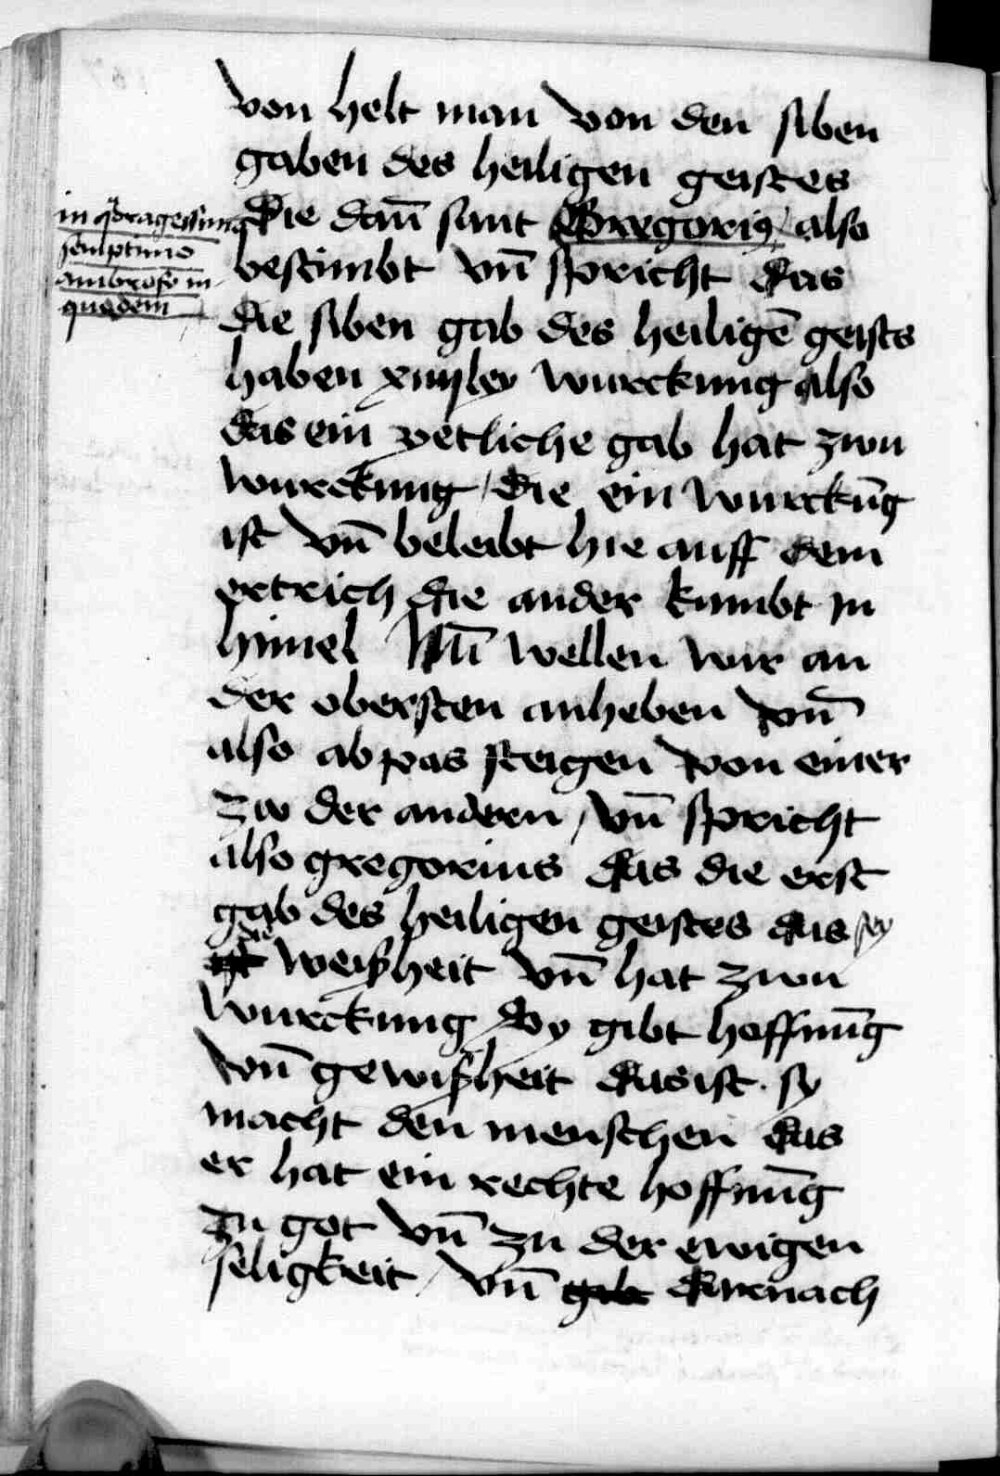 von helt man von den siben
gaben des heiligen geistes
die dañ sant Gregorius also
bestimbt vñ spricht das
die siben gab des heiligē geists
haben xiiijley wurckung also
das ein yetliche gab hat zwu
wurckung / die ein wurckūg
ist vñ beleibt hie auff dem
ertrich die ander kumbt in
himel Nū wellen wir an
der obersten anheben vñ
also ab pas steigen von einer
zw der andern / vñ spricht
also gregorius das die erst
gab des heiligen geistes das sey
die weisheit vñ hat zwu
wurckung Sy gibt hoffnūg
vñ gewisheit das ist sy
macht den menschen das
er hat ein rechte hoffnūg
zu got vñ zu der ewigen
seligkeit / vñ darnach
ambrosio in